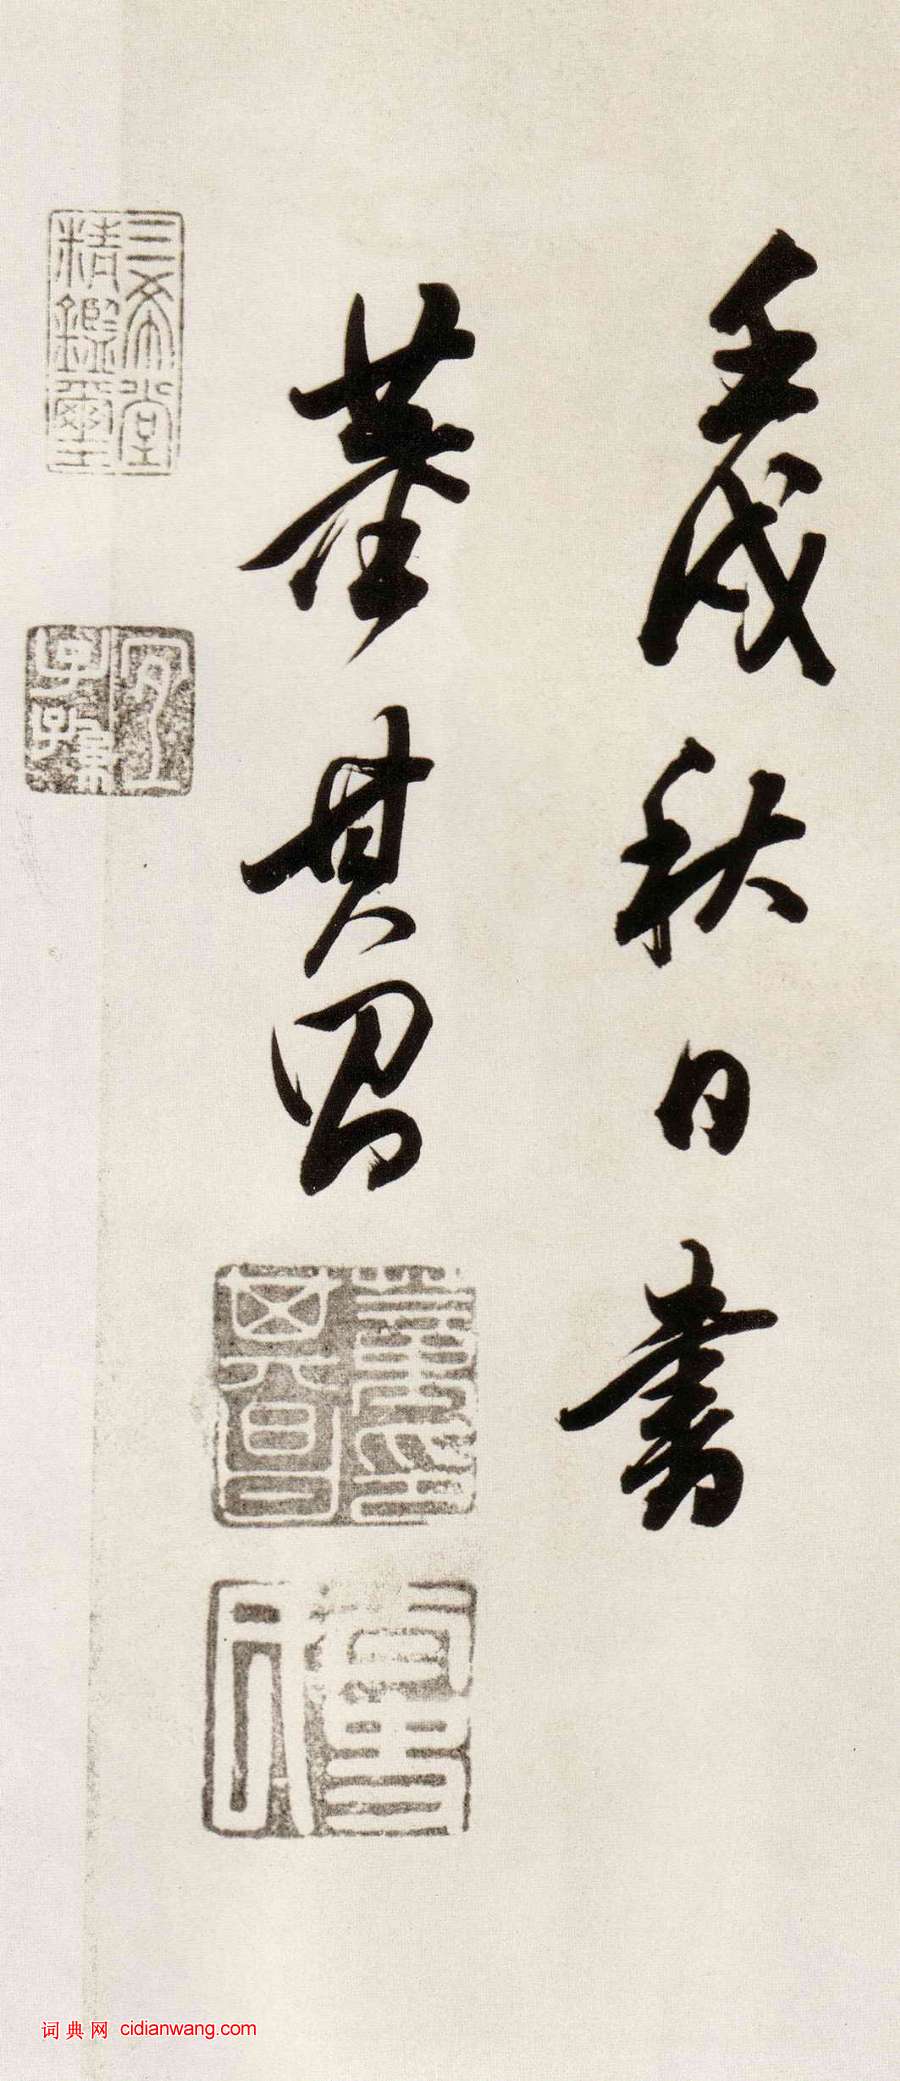 壬戌秋日書
董其昌
三希堂
精鑑璽
宜
子孫
词典网 cidianwang.com